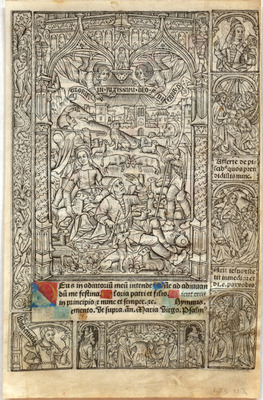 GLORIA IN ALTISSIMIS DEO
Afferte de pi
scib' quos pren
didistis nunc.
Deus in adiutoriū meū intende Dñe ad adiuuan
dū me festina. Gloria patri et filio. Sicut erat
in principio et nunc et semper. ꝛc. Hymnus.
Memento. Vt supra. añ. Maria virgo. Psalm'